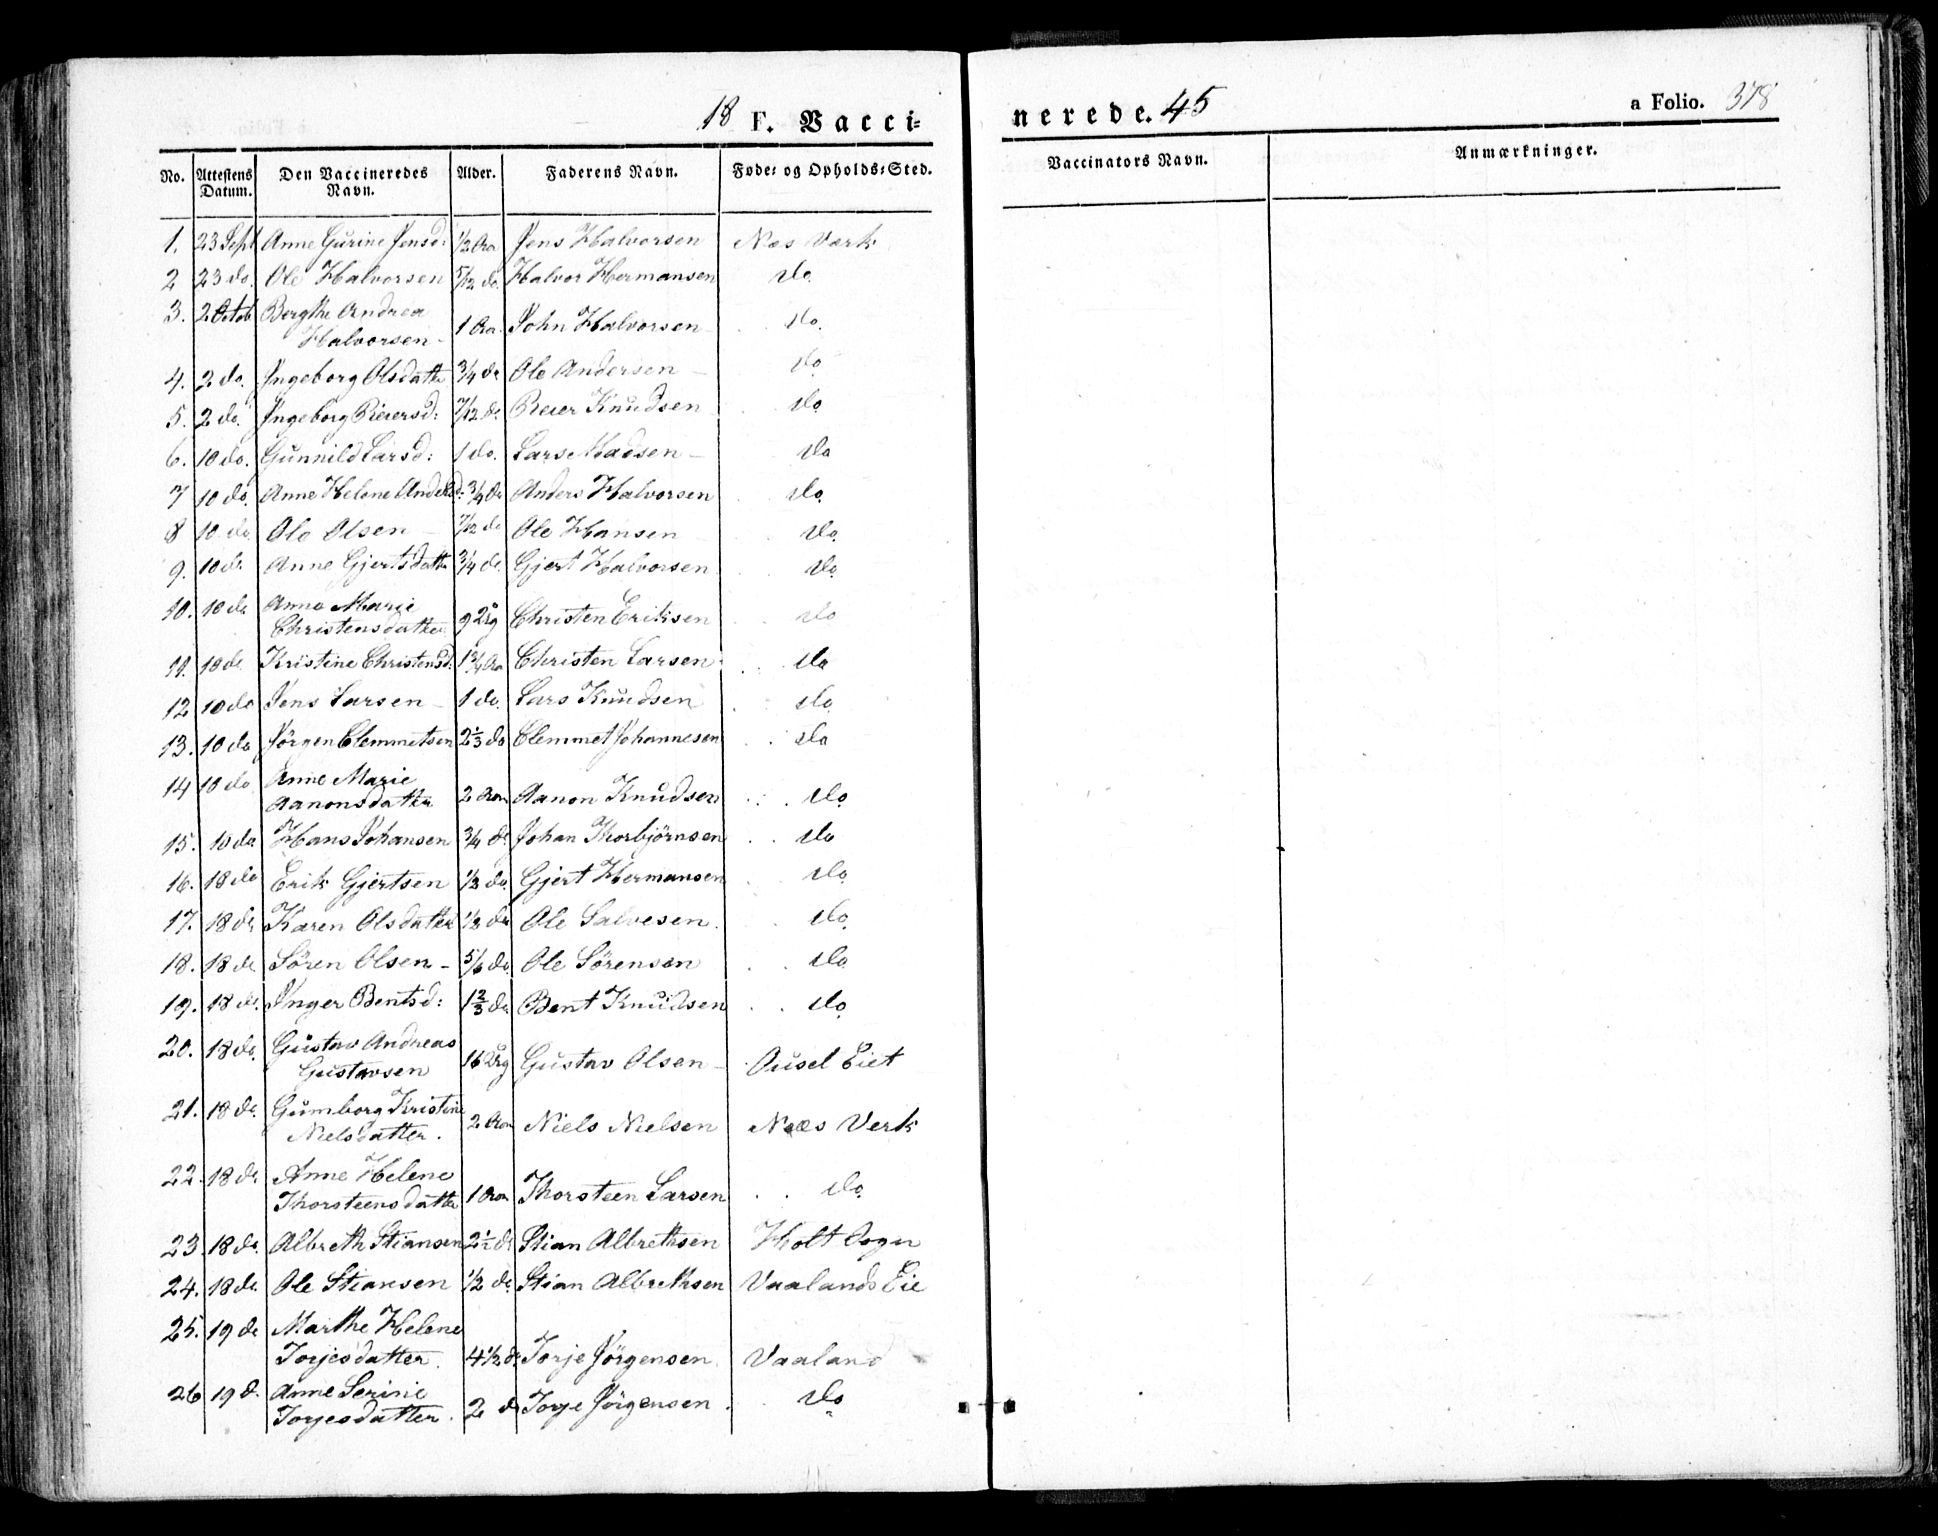 18 F. Vacci= nerede. 45 a Folio. 378
No. Attestens Datum. Den Vaccineredes Navn. Alder. Faderens Navn. Føde= og Opholds=Sted. Vaccinators Navn. Anmærkninger.
1. 23 Sept Anne Gurine Jensd: 1/2 Aar Jens Halvorsen Næs Værk
2 23 do. Ole Halvorsen 5/12 do. Halvor Hermansen do.
3. 2 Octob Bergthe Andrea
Halvorsen - 1 Aar. John Halvorsen - do.
4. 2 do. Ingeborg Olsdatter 3/4 do Ole Andersen - do
5. 2 do. Ingeborg Reiersd: 7/12 do. Reier Knudsen do
6. 10 do. Gunnild Larsd: 1 do. Lars Madsen - do
7 10 do. Anne Helene Andersd: 3/4 do Anders Halvorsen do.
8 10 do Ole Olsen - 7/12 do Ole Hansen do.
9. 10 do. Anne Gjertsdatter 3/4 do. Gjert Halvorsen do.
10. 10 do Anne Marie
Christensdatter 9 Christen Eriksen do
11. 10 do. Kristine Christensd: 1 3/4 Aar Christen Larsen do
12 10 do Jens Larsen - 1 do. Lars Knudsen do.
13. 10 do Jörgen Clemmetsen 2 1/3 do Clemmet Johannesen do
14 10 do Anne Marie
Aanonsdatter 2 Aar Aanon Knudsen do.
15. 10 do Hans Johansen 3/4 do. Johan Thorbjörnsen do
16. 18 do Erik Gjertsen 1/2 do. Gjert Hermansen do.
17. 18 do Karen Olsdatter 1/2 do Ole Salvesen. do.
18. 18 do Sören Olsen - 5/6 do. Ole Sörensen do
19. 18 do. Inger Bentsd: 1 2/3 do. Bent Knudsen do.
20. 18 do. Gustav Andreas
Gustavsen 16 Gustav Olsen - Ausel Eiet
21. 18 do. Gumborg Kristine
Nielsdatter. 2 Aar Niels Nielsen Næs Verk
22. 18 do Anne Helene
Thorsteensdatter 1 Aar Thorsteen Larsen do.
23 18 do. Albreth Stiansen 2 1/2 do Stian Albrethsen Holt Sogn
24. 18 do. Ole Stiansen 1/2 do. Stian Albrethsen Vaalands Eie
25. 19 do Marthe Helene
Torjesdatter. 4 1/2 do Torje Jörgensen. Vaaland
26 19 d. Anne Serine
Torjesdatter. 2 do Torje Jörgensen. do